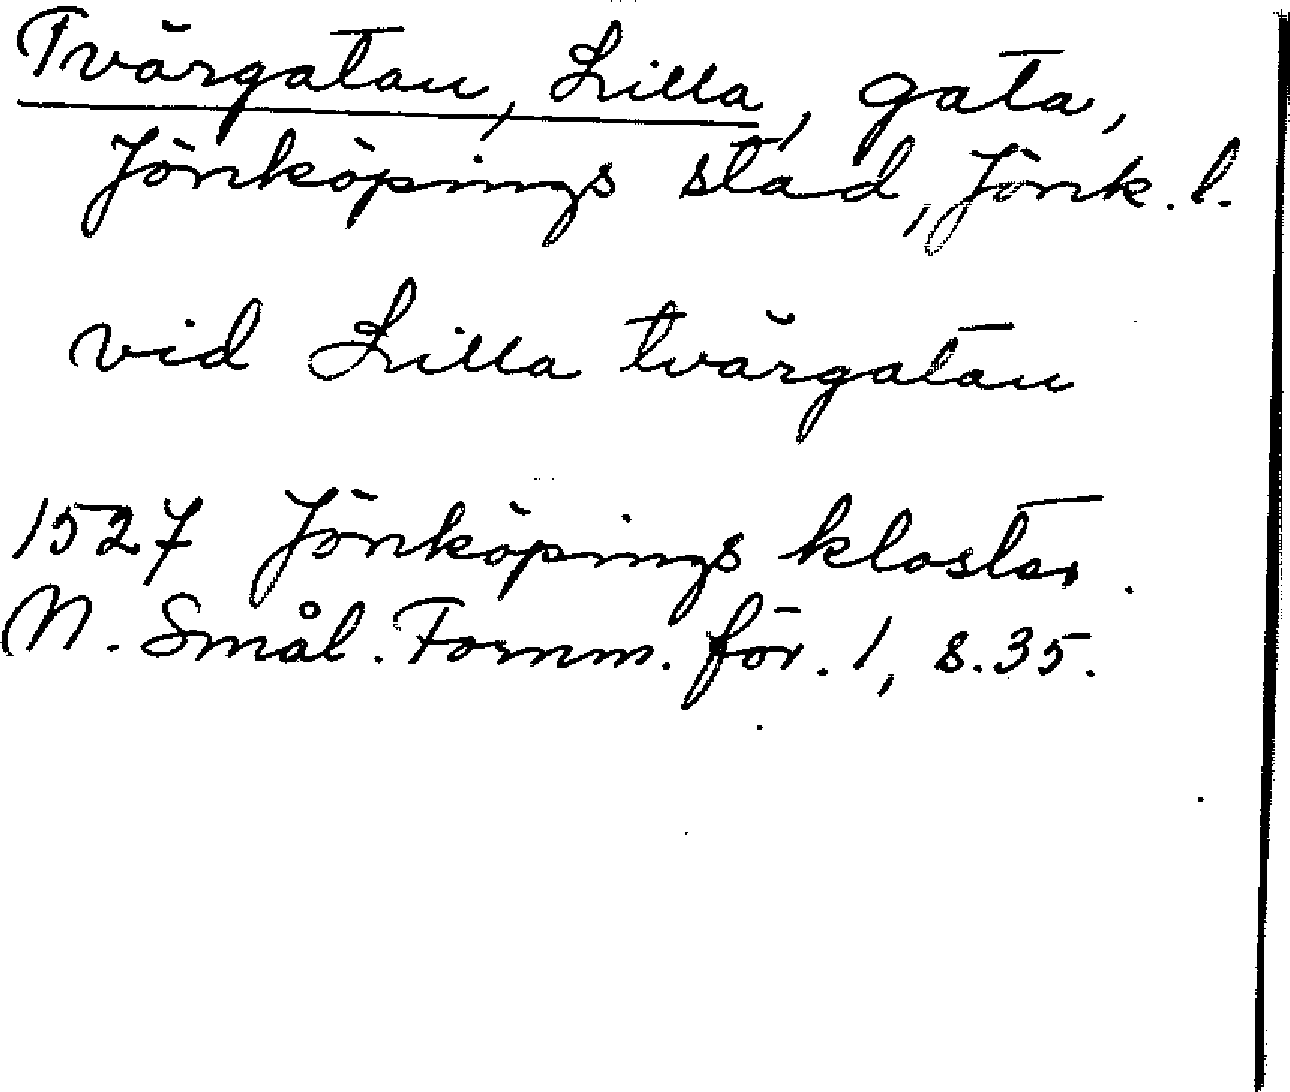 Tvärgatan, Lilla, gata,
Jönköpings stad, Jönk. l.
vid Lilla tvärgatan
1527 Jönköpings kloster.
N. Smål. Fornm. för. 1, s. 35.